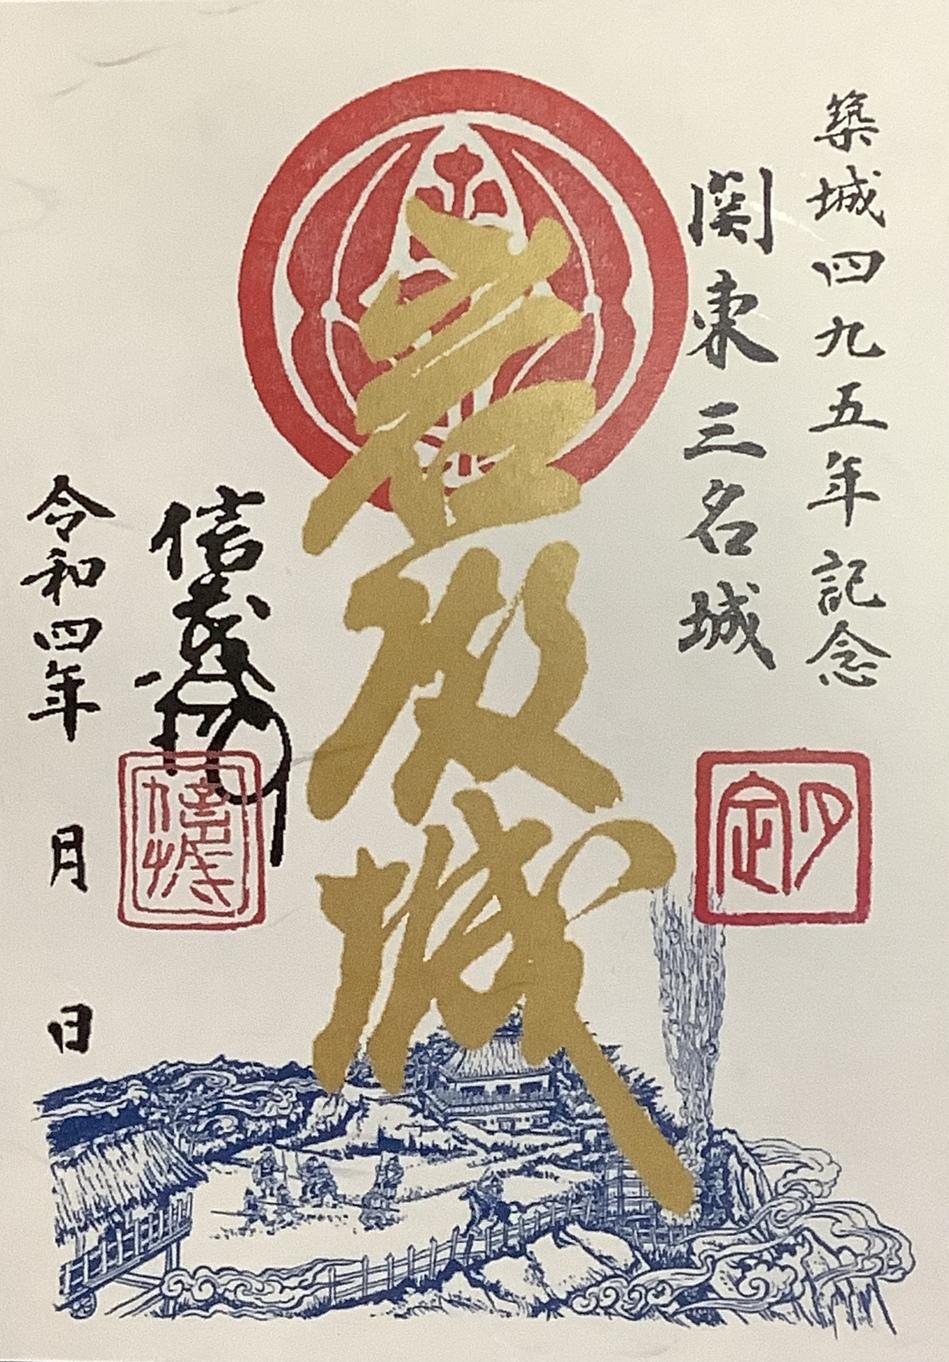 築城四九五年記念
関東三名城
岩殿城
信茂
令和四年 月 日